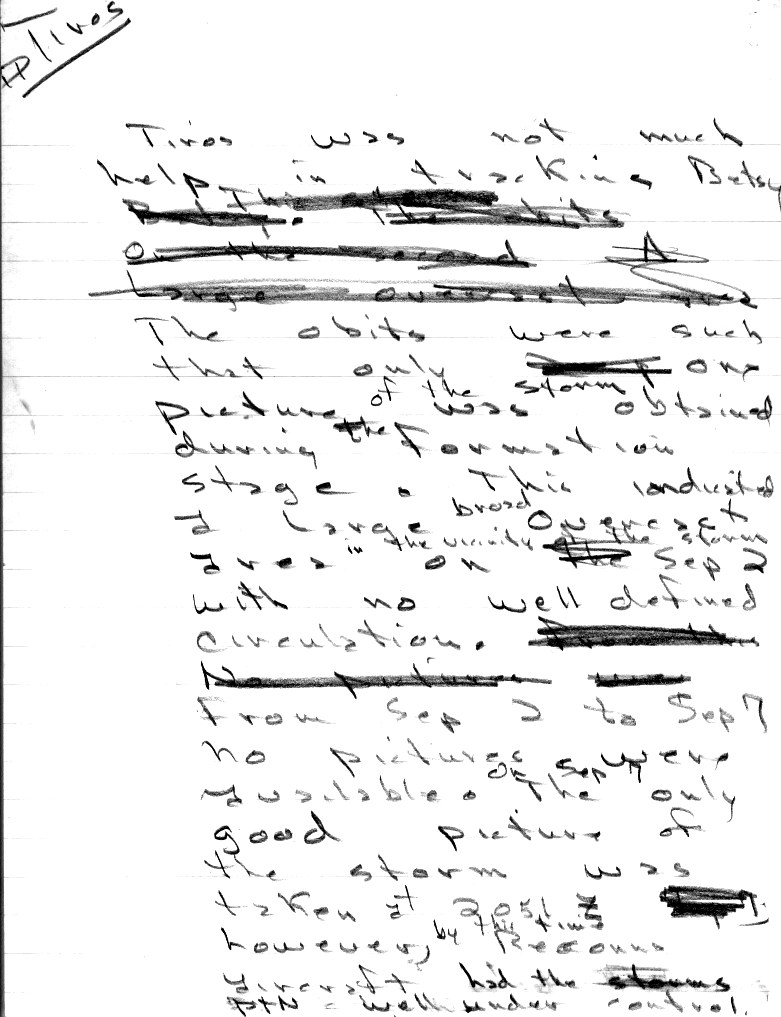 Tiros
Tiros was not much
help in tracking Betsy
The obits were such
that only one
picture of the storm was obtained
during the formation
stage. This indicated
a large broad overcast
area in the vicinity of the storm on Sep 2
with no well defined
circulation.
From Sep 2 to Sep 7
no pictures were
available. On Sep 7 the only
good picture of
the storm was
taken at 2051 Z
however, by this time Reconns
aircraft had the storms
well under control.